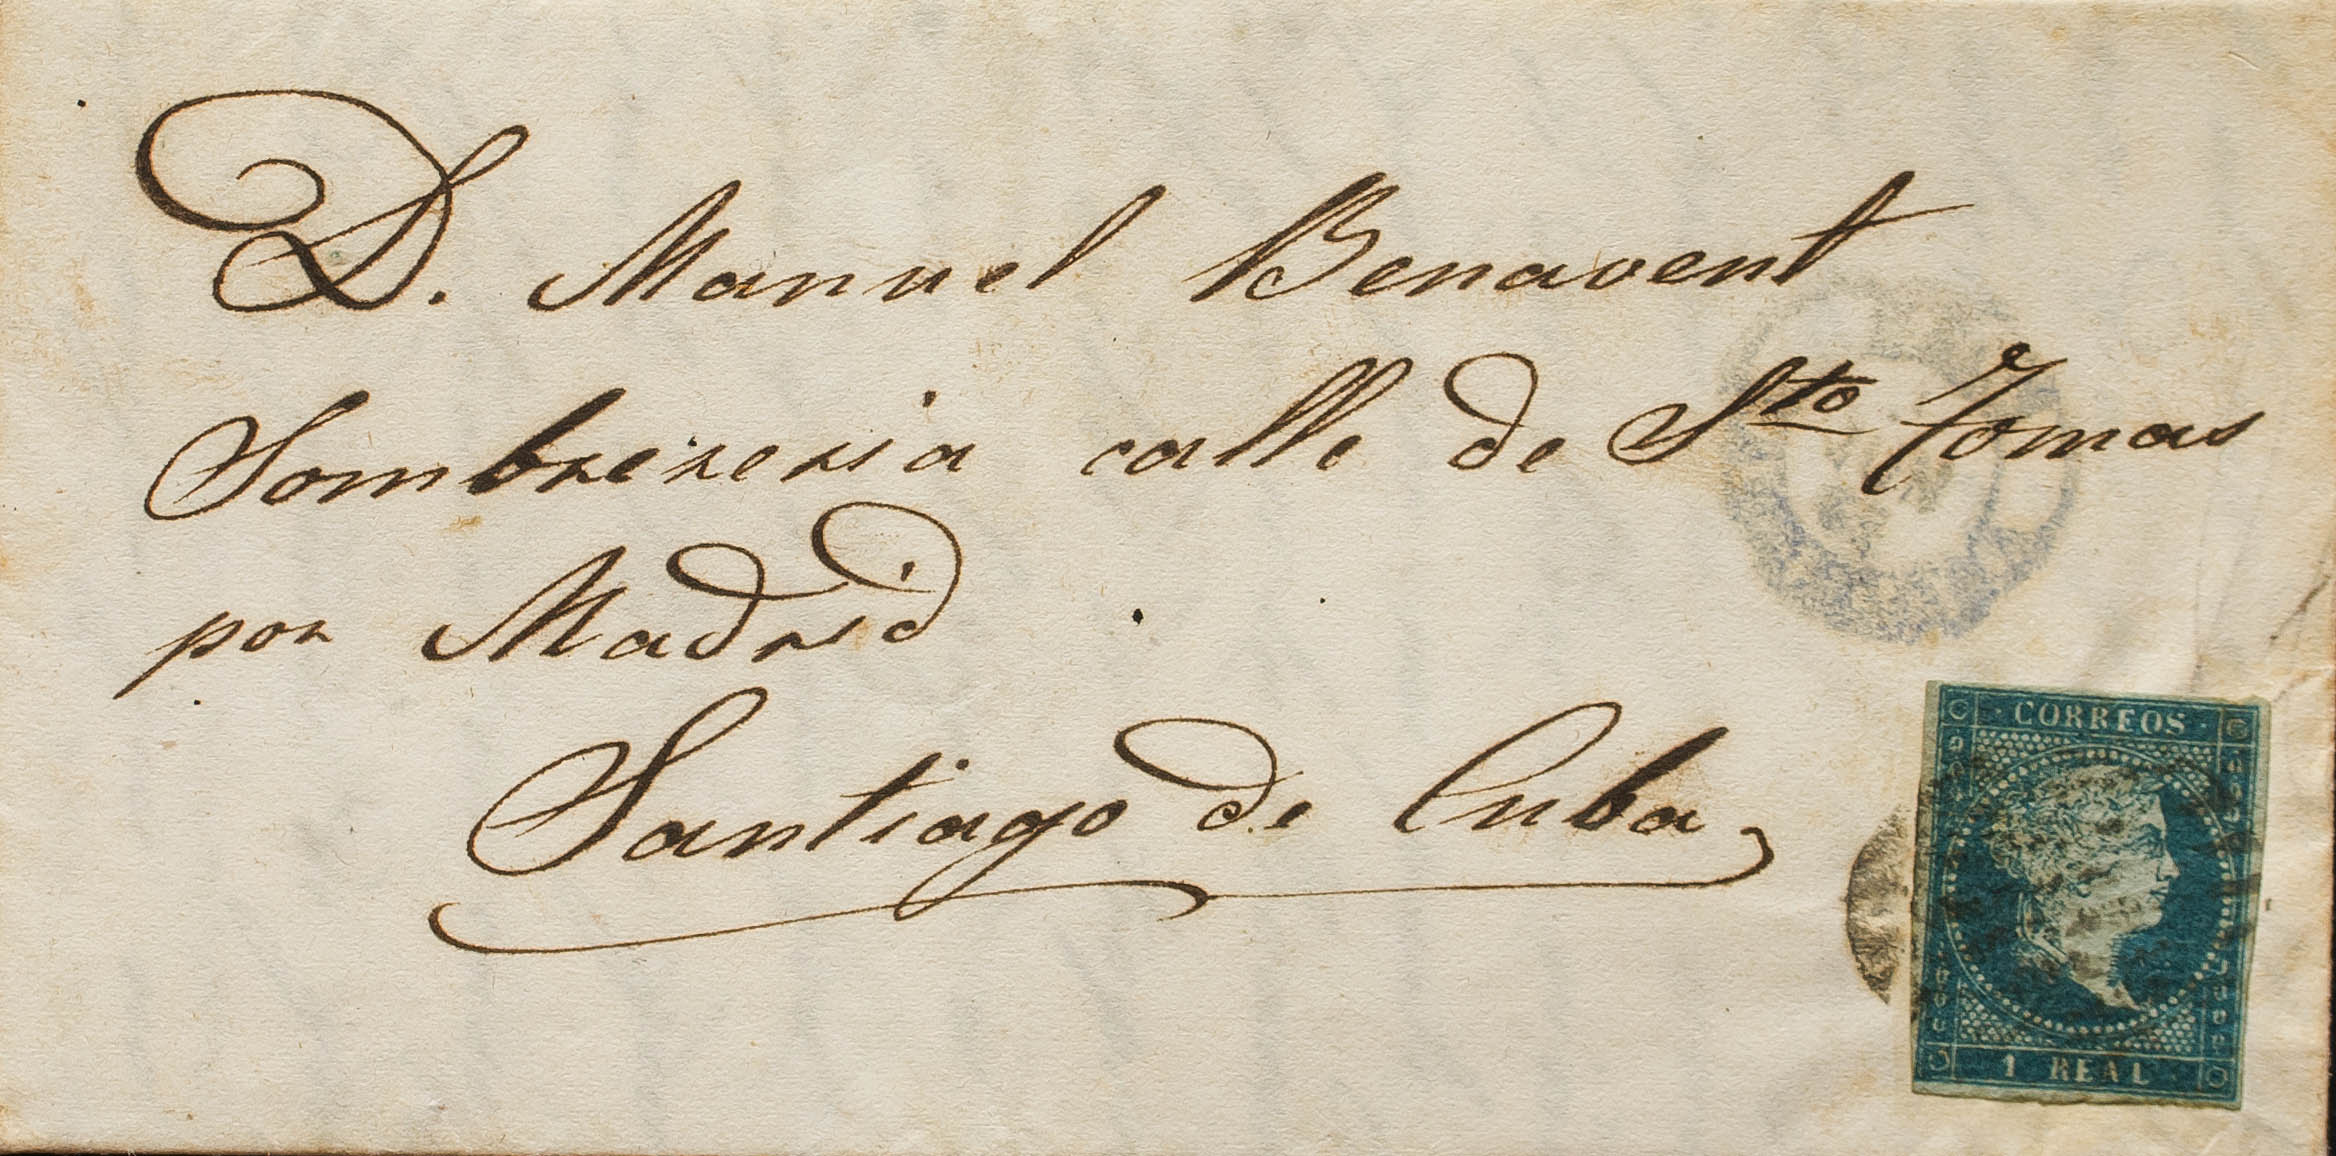 D. Manuel Benavent
Sombrereria calle de Sto Tomas
por Madrid
Santiago de Cuba
CORREOS
1 REAL